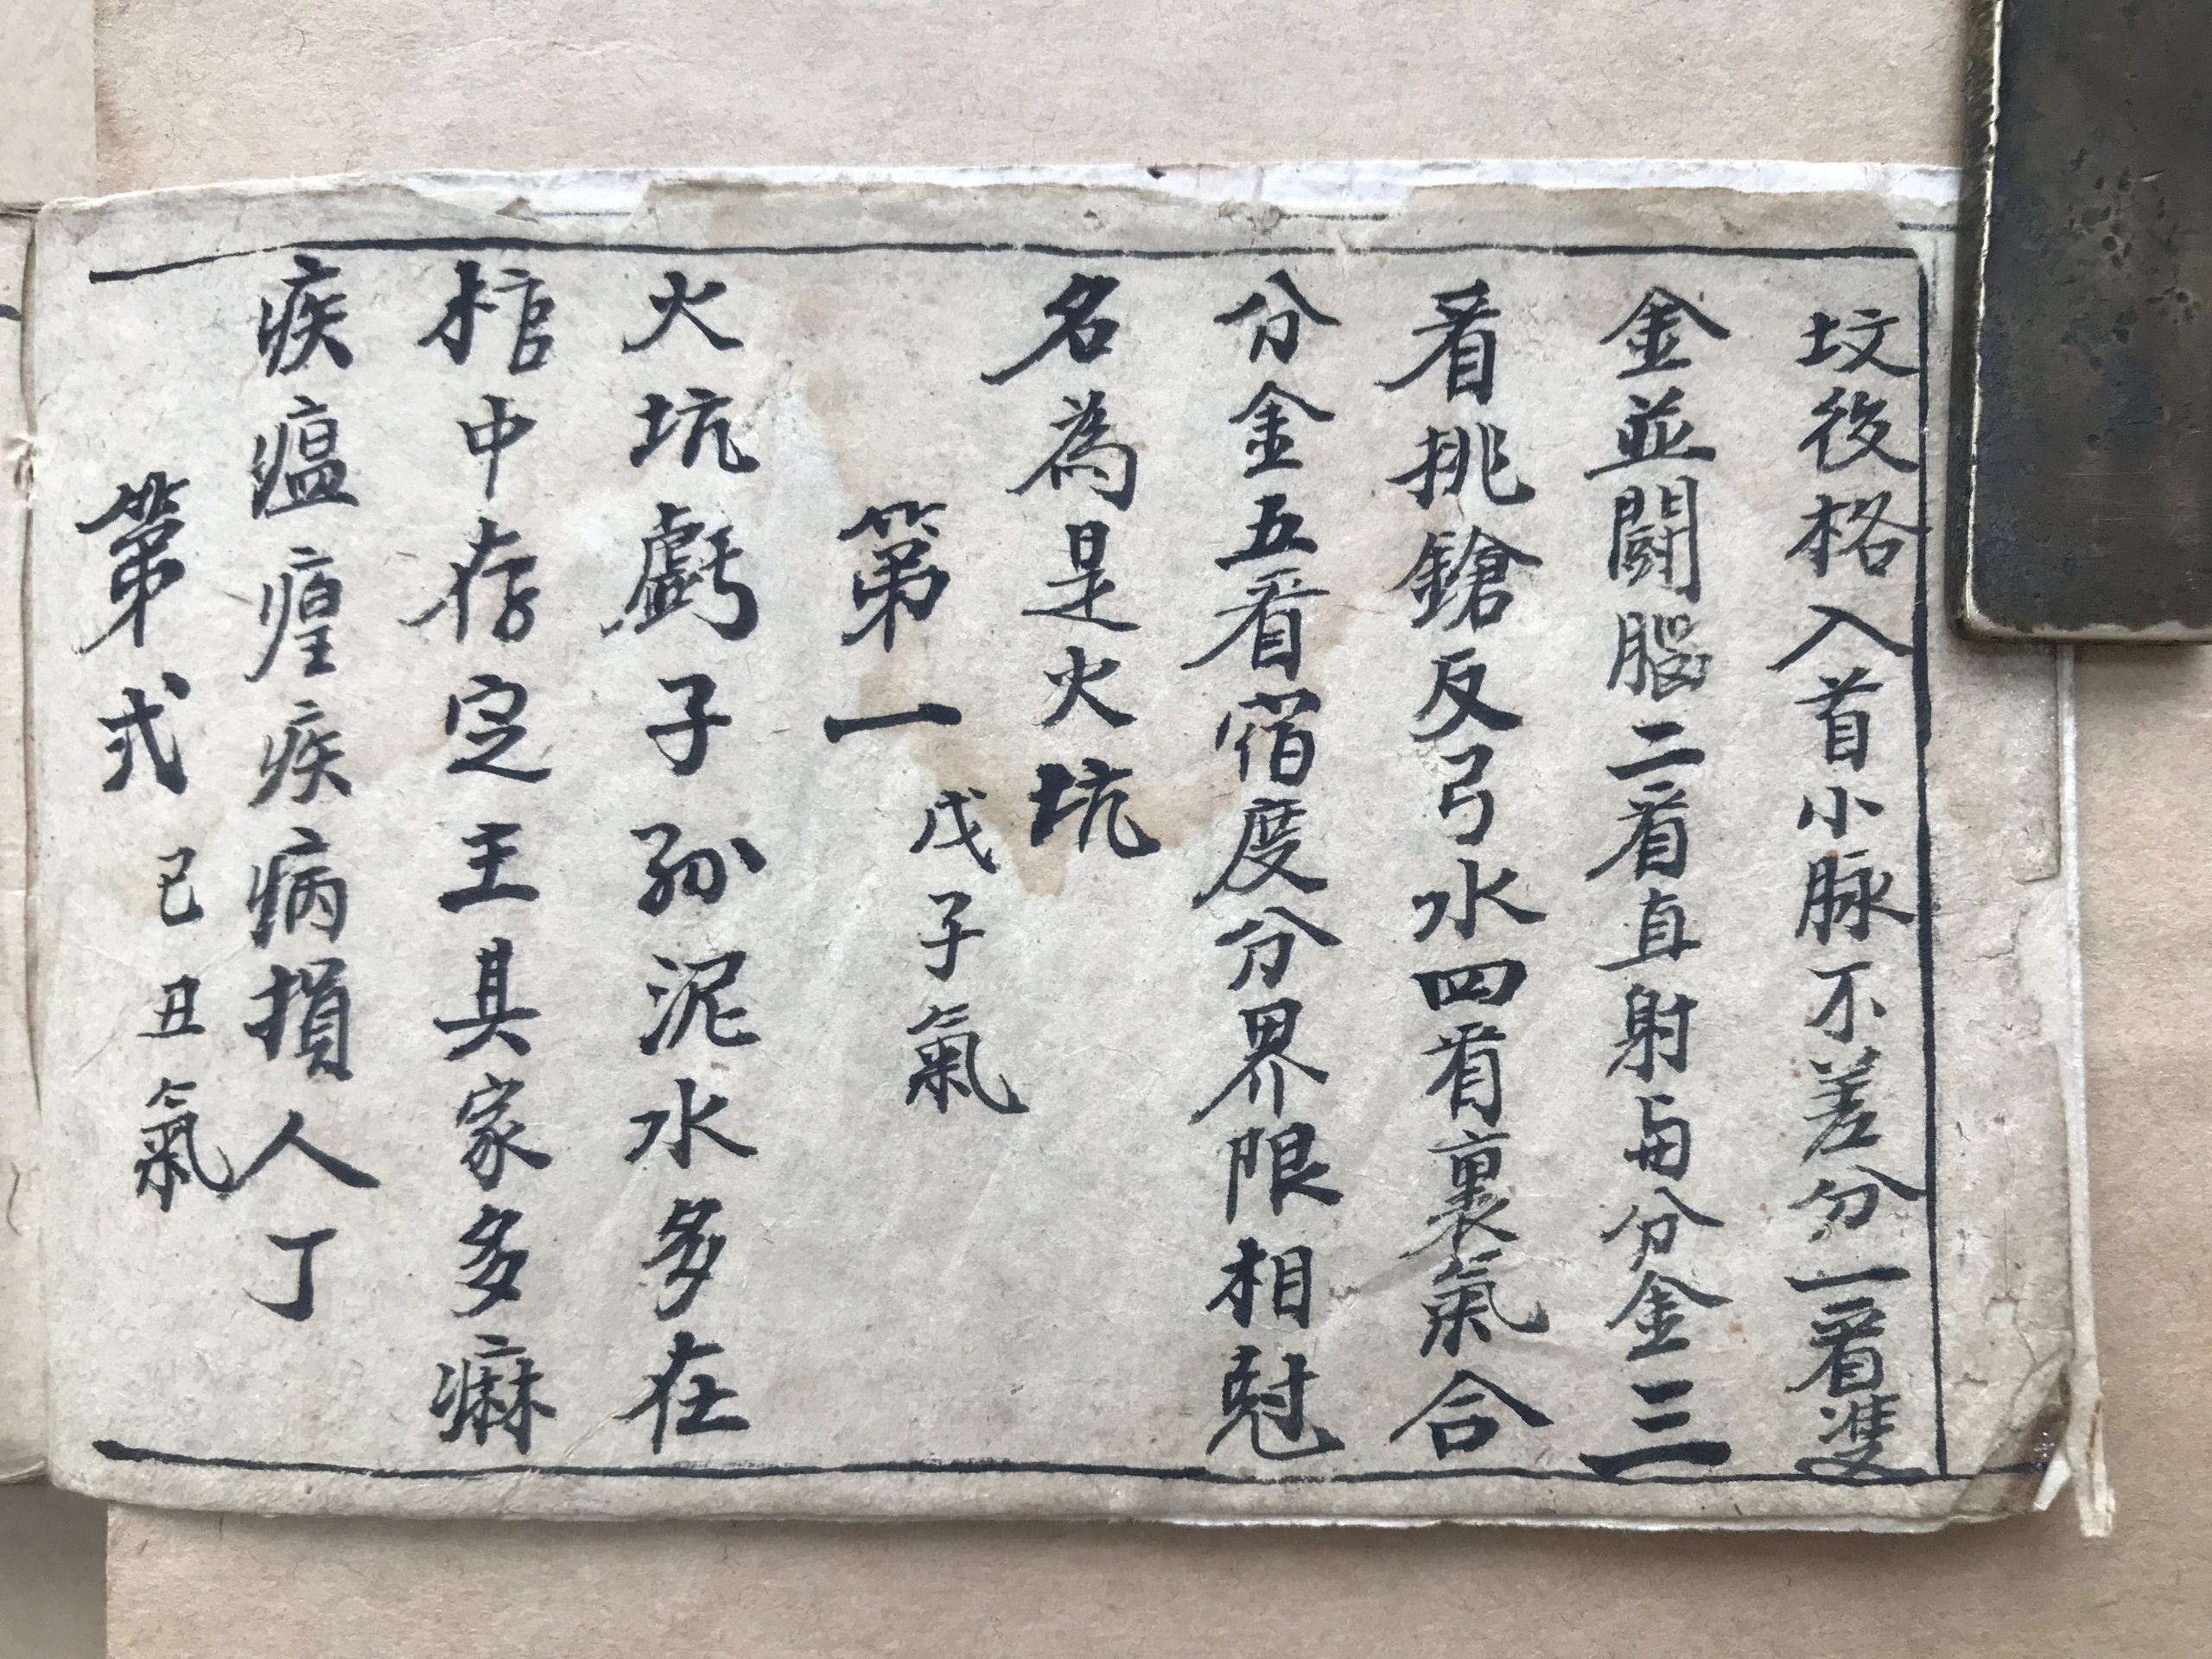 坟後格入首小脉不差分一看雙
金並鬪腦二看直射与分金三
看挑鎗反弓水四看裏氣合
分金五看宿度分界限相尅
名為是火坑
第一戊子氣
火坑虧子孫泥水多在
棺中存定主其家多痳
疾瘟瘟疾病損人丁
第弍己丑氣